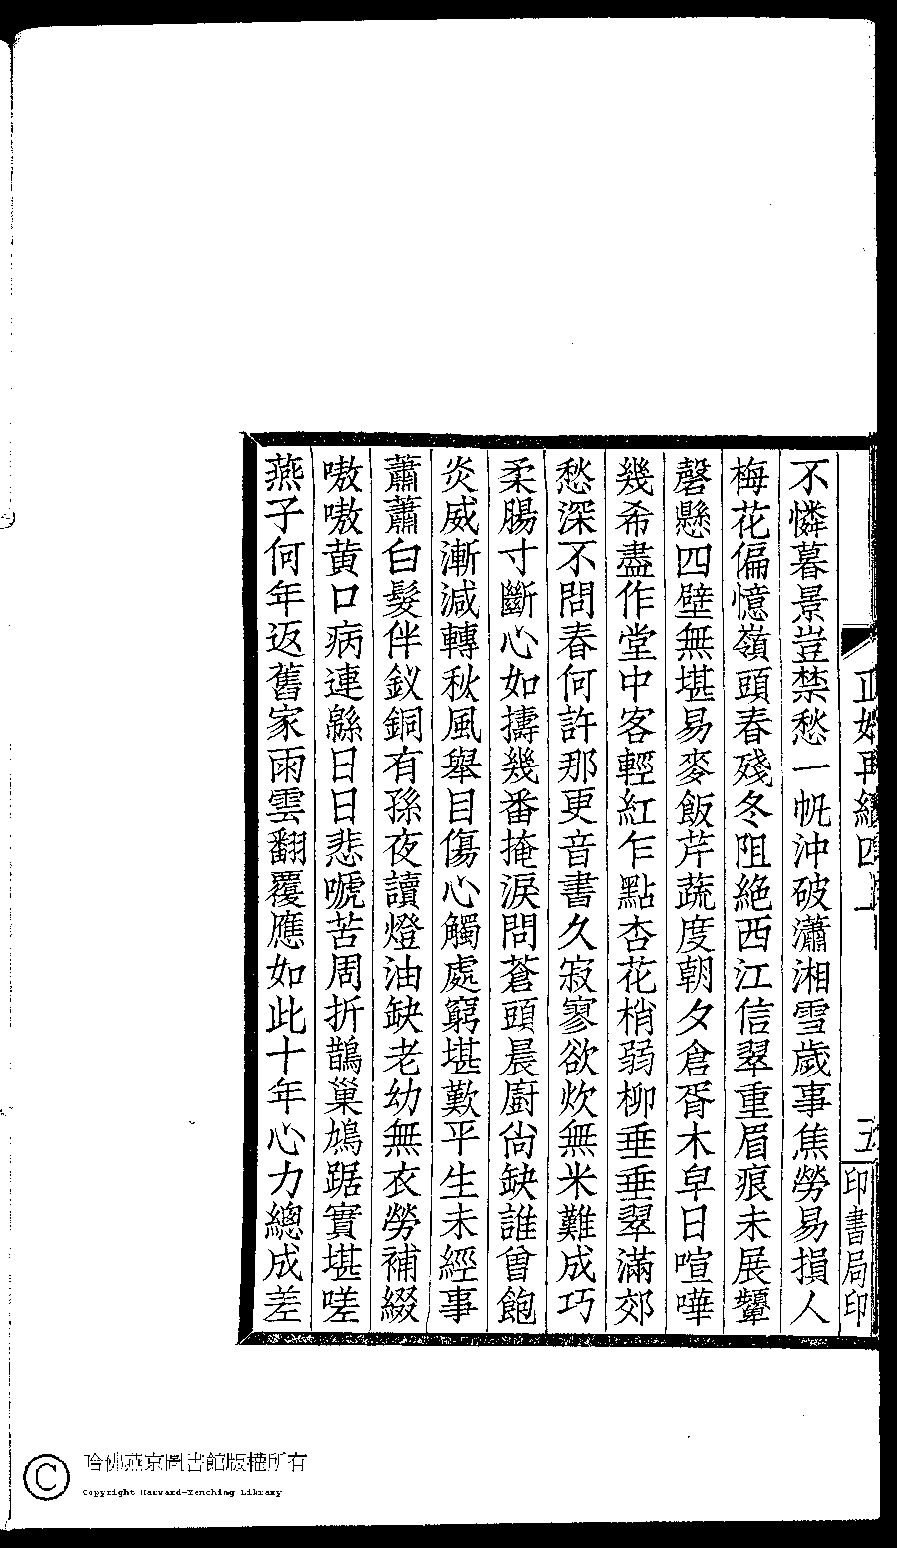 正始再續四上
五
印書局印
不憐暮景豈禁愁一帆沖破瀟湘雪歲事焦勞易損人
梅花偏憶嶺頭春殘冬阻絕西江信翠重眉痕未展顰
磬懸四壁無堪易麥飯芹蔬度朝夕倉胥木皁日喧嘩
幾希盡作堂中客輕紅乍點杏花梢弱柳垂垂翠滿郊
愁深不問春何許那更音書久寂寥欲炊無米難成巧
柔腸寸斷心如擣幾番掩淚問蒼頭晨廚尙缺誰曾飽
炎威漸減轉秋風舉目傷心觸處窮堪歎平生未經事
蕭蕭白髮伴釵銅有孫夜讀燈油缺老幼無衣勞補綴
嗷嗷黃口病連緜日日悲嗁苦周折鵲巢鳩踞實堪嗟
燕子何年返舊家雨雲翻覆應如此十年心力總成差
哈佛燕京圖書館版權所有
Copyright Harvard-Yenching Library